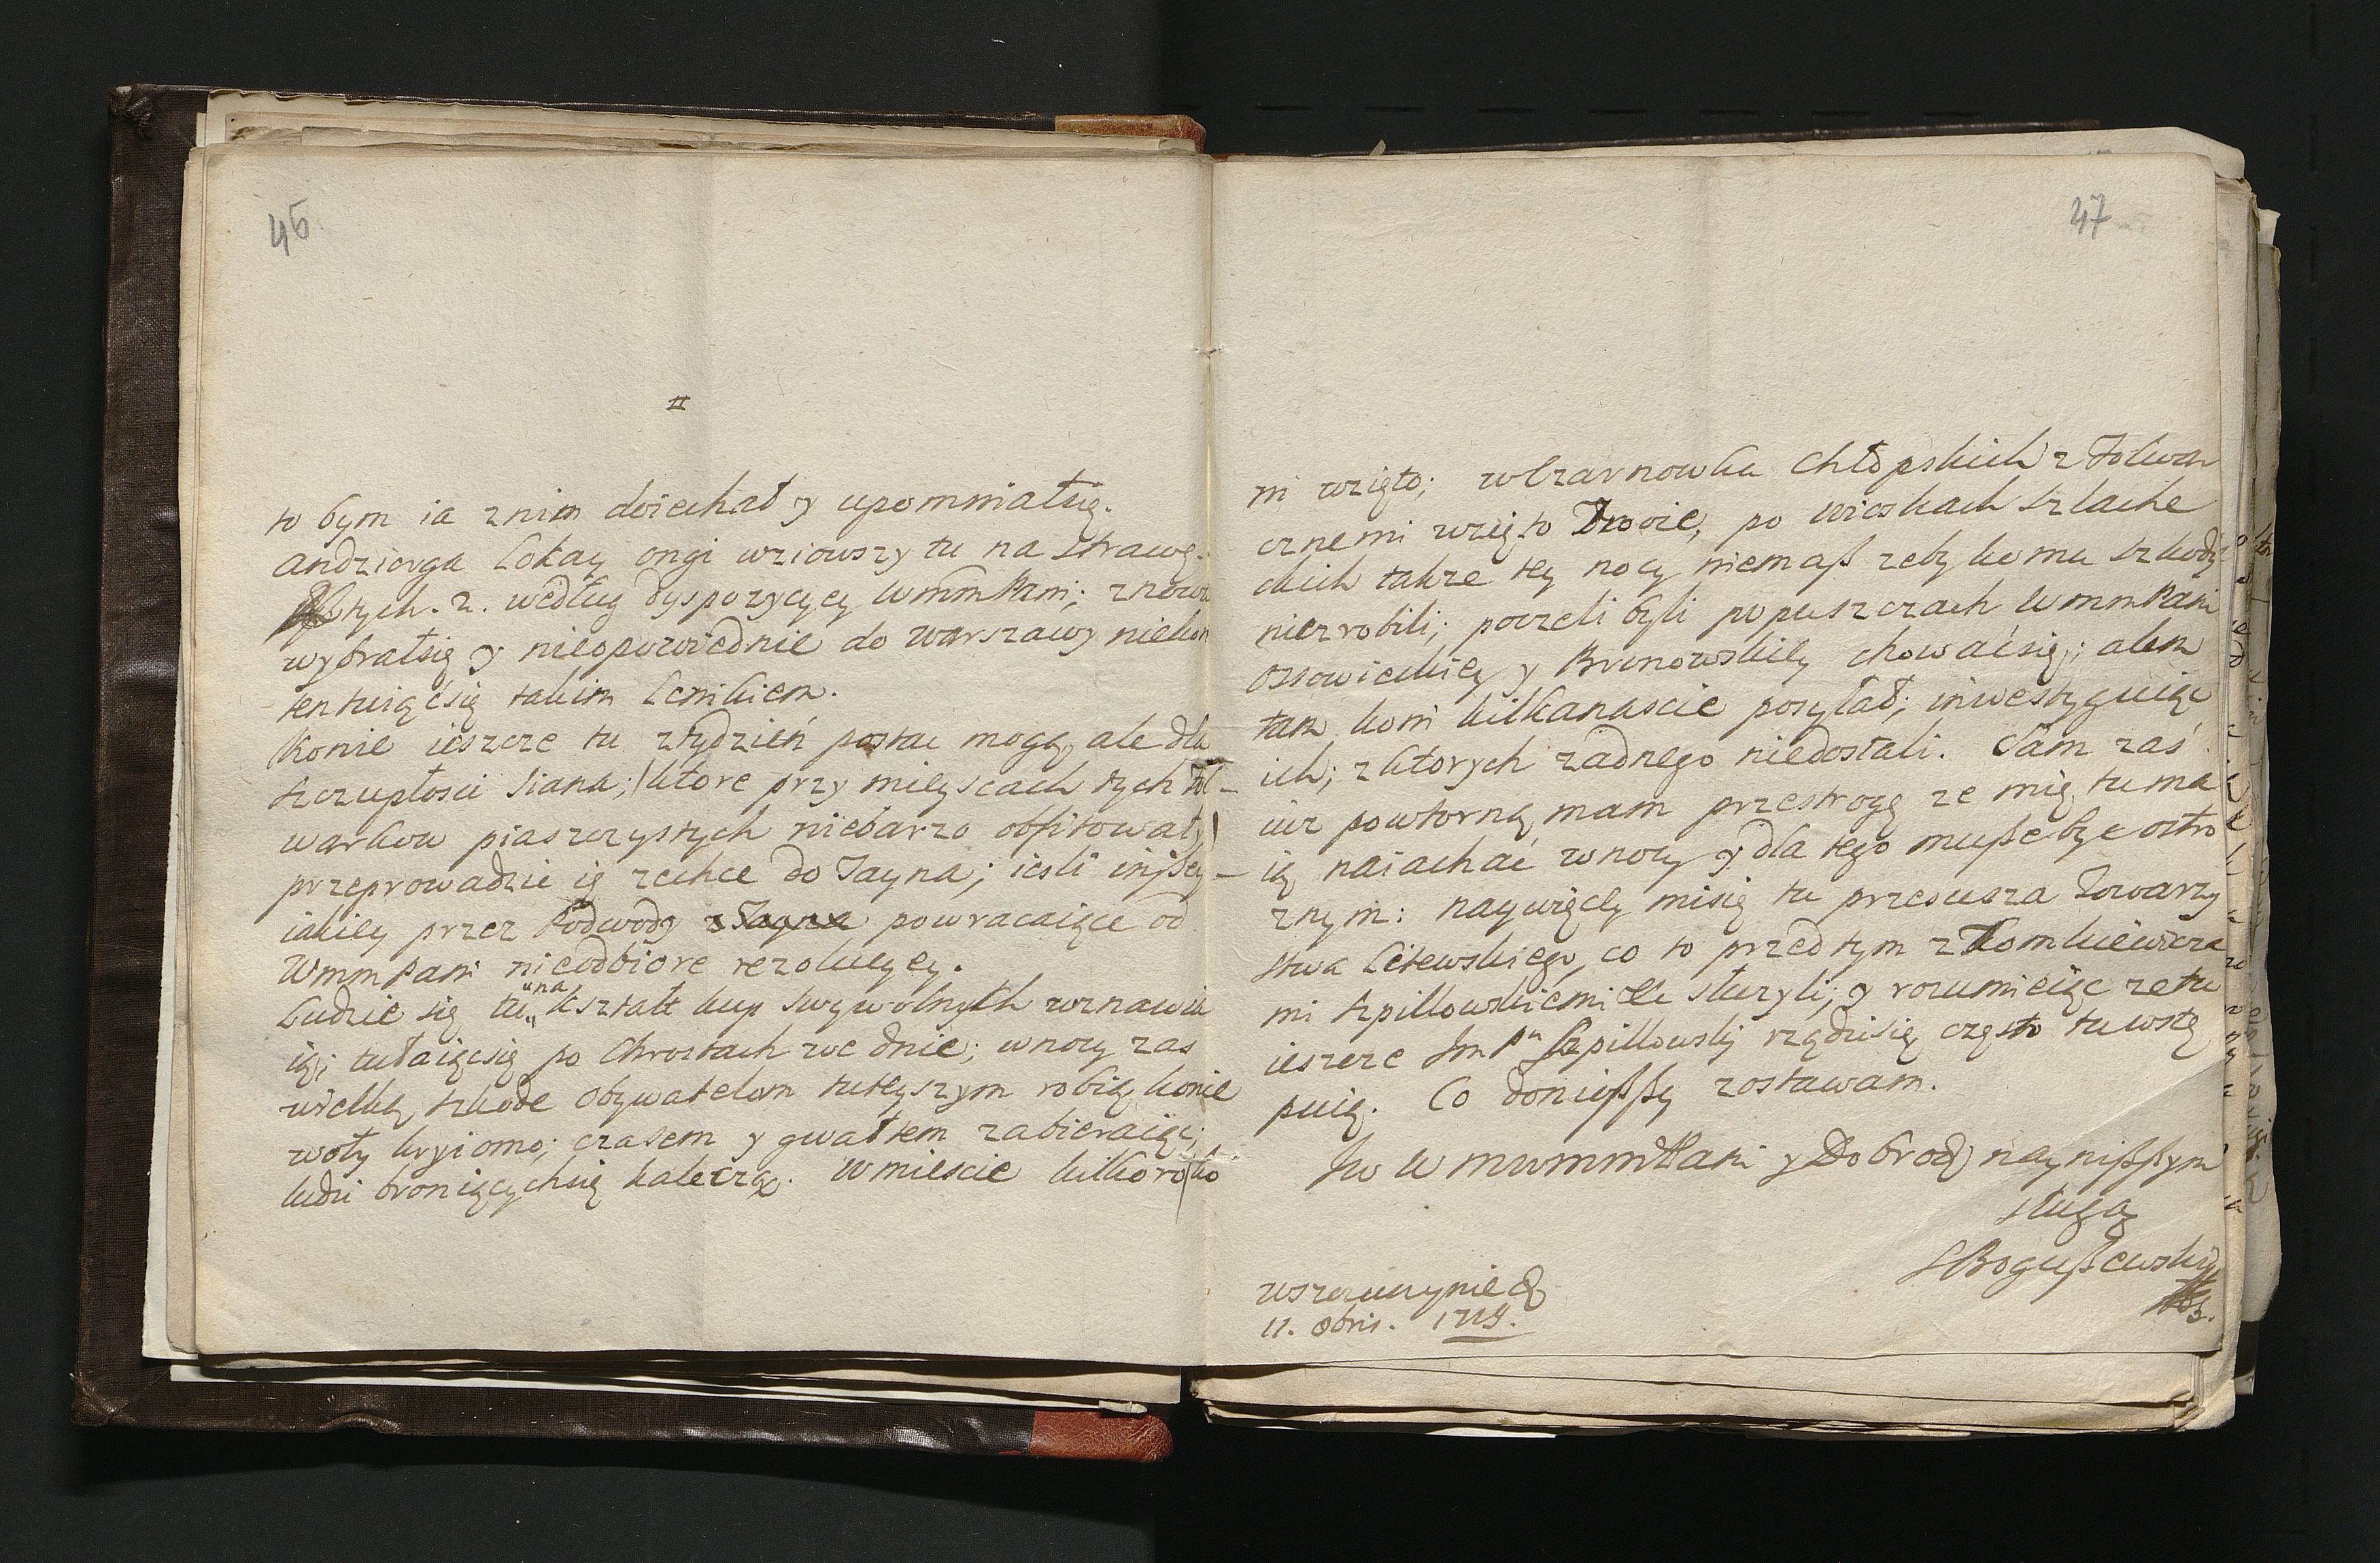 46
#
to bym ia znim doiechał y upomniałsię.
Andzierga Lokay ongi wziowszy tu na strawę
tych. 2. według dyspozycyey WmmPani; znowu
wybrałsię y nieopowiednie do Warszawy niekon
tentuiącsię takim Cenikiem.
Konie ieszcze tu ztydzień postac mogą, ale dla
szczupłosci siana; ktore przy mieyscach tych fol
warkow piaszczystych niebarzo obfitowały
przeprowadzic ię zechce do Jayna; iesli inßey
iakiey przez Podwody z Jayna powracaiące od
WmmPani nieodbiore rezolucyey.
Ludzie się tu na kształt kup swywolnych wznawia
ią; tułaiącsię po Chrostach we dnie; wnocy zas
wielką szkode Obywatelom tuteyszym robią, konie
woły kryiomo; czasem y gwałtem zabieraiąc;
ludzi broniącychsię kaleczą. Wmiescie kilkoro ko
47
ni wzięto; wCzarnowku Chłopskich z Folwar
cznemi wzięto Troie, po wioskach szlache
ckich takze tey nocy niemaß zeby komu szkody
niezrobili; poczeli byli popuszczach WmmPani
Ossowieckiey y Brunowskiey chowaćsię; alem
tam koni kilkanascie posyłał; inwestyguiąc
ich; zktorych zadnego niedostali. Sam zaś
iuz powtorną mam przestrogę ze mię tu ma
ią naiachać wnocy y dla tego muße byc ostro
znym: naywięcey misię tu przesusza Towarzy
stwa Litewskiego, co to przedtym z Tomkiewicza
mi Szpillowskiemi tu słuzyli; y rozumieiąc ze tu
ieszcze Jm Pn Szpillowsky rządzisię często tu wstę
puią. Co donioßßy zostawam.
Jw W mwmmPani y Dobrodz naynißßym
sługą
SBogußewsky
wSzczuczynie d
11. 8bris. 1719.